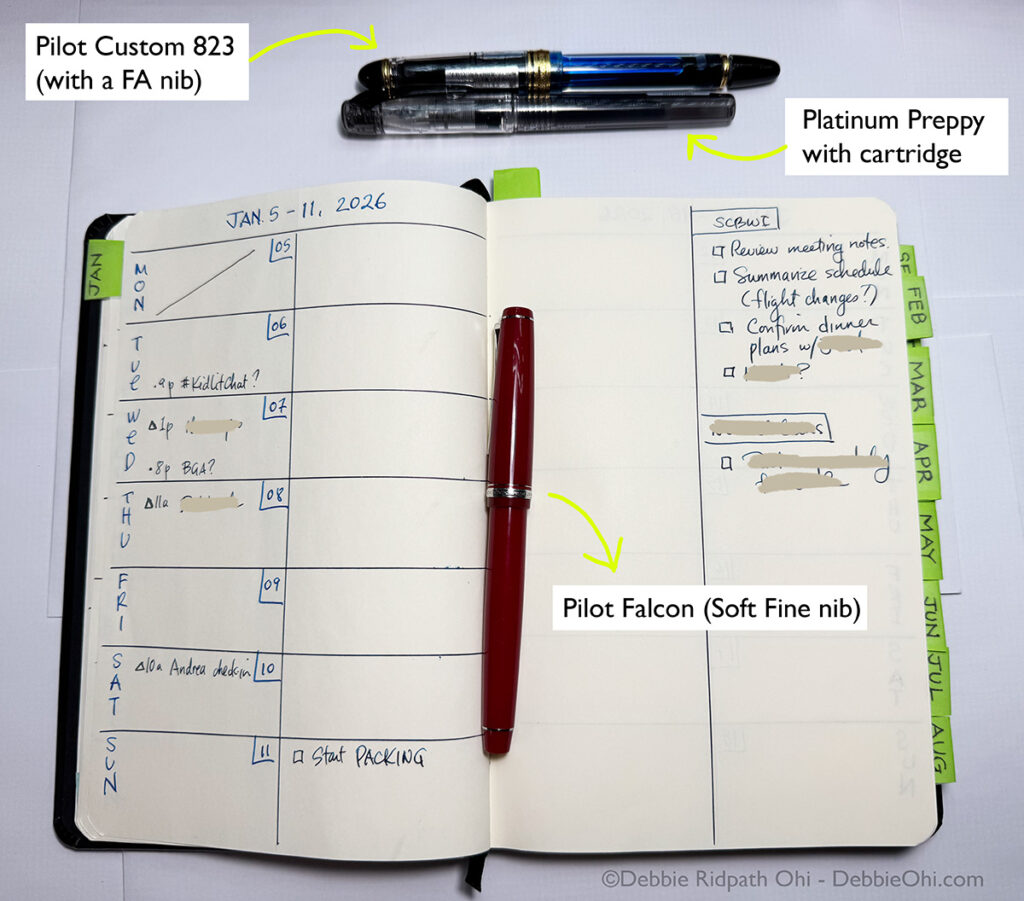 Pilot Custom 823
(with a FA nib)
Platinum Preppy
with cartridge
JAN. 5 - 11, 2026
JAN
MON
05
TUE
06
.9p #KidLitChat?
WED
07
△1p
.8p BGA?
THU
08
△11a
FRI
09
SAT
10
△10a Andrea checkin
SUN
11
□ Start PACKING
SCBWI
□ Review meeting notes.
□ Summarize schedule
(flight changes?)
□ Confirm dinner
plans w/
□ ?
□
Pilot Falcon (Soft Fine nib)
SE
FEB
MAR
APR
MAY
JUN
JUL
AUG
©Debbie Ridpath Ohi - DebbieOhi.com